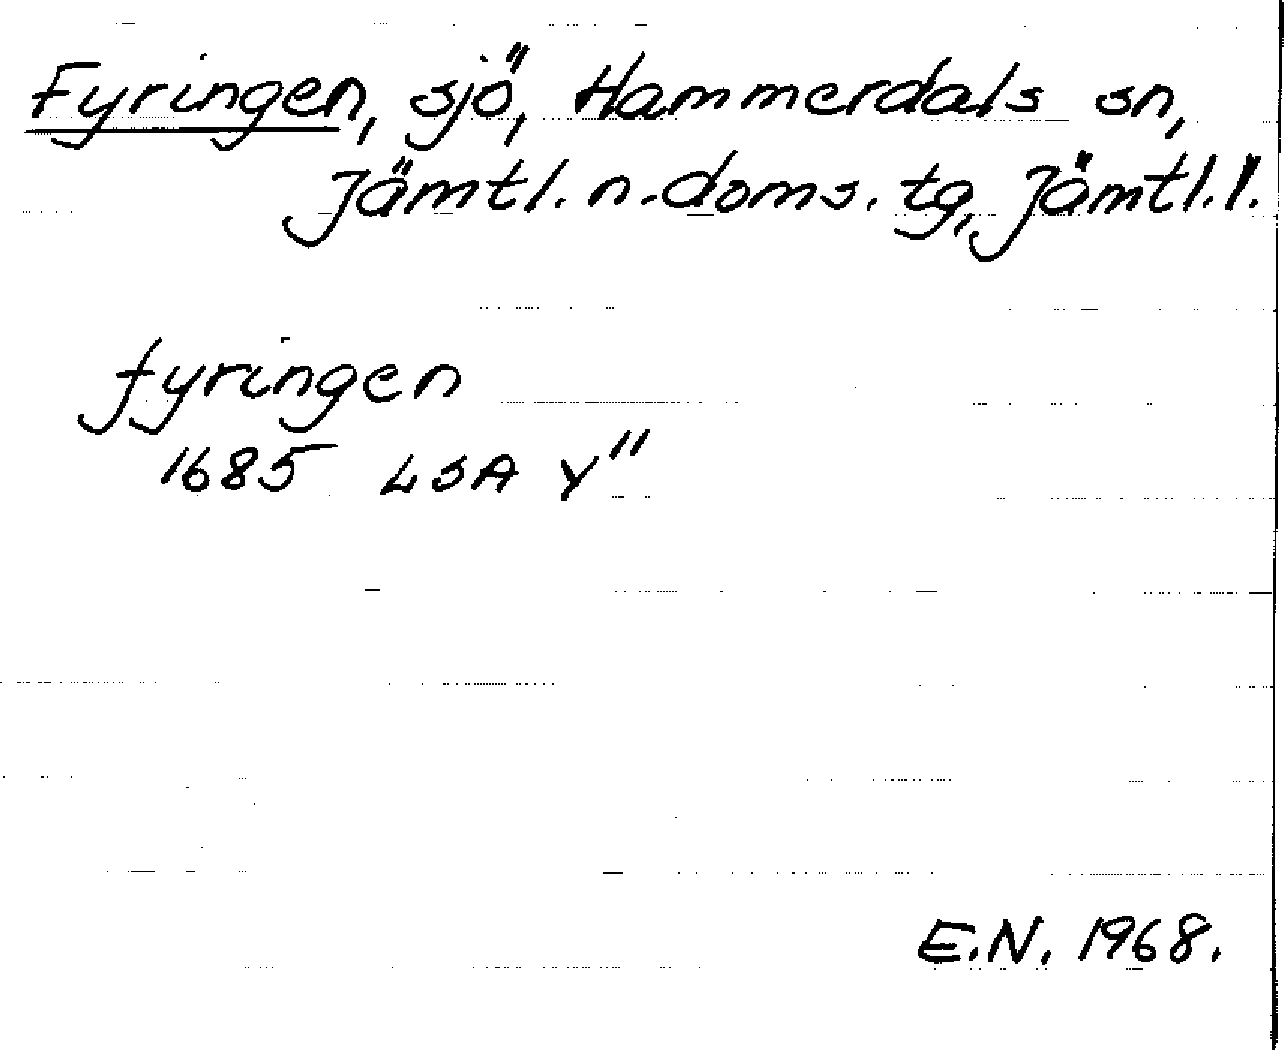 Fyringen, sjö, Hammerdals sn,
Jämtl. n. doms. tg, Jämtl. l.
fyringen
1685 LSA Y"
E.N. 1968.